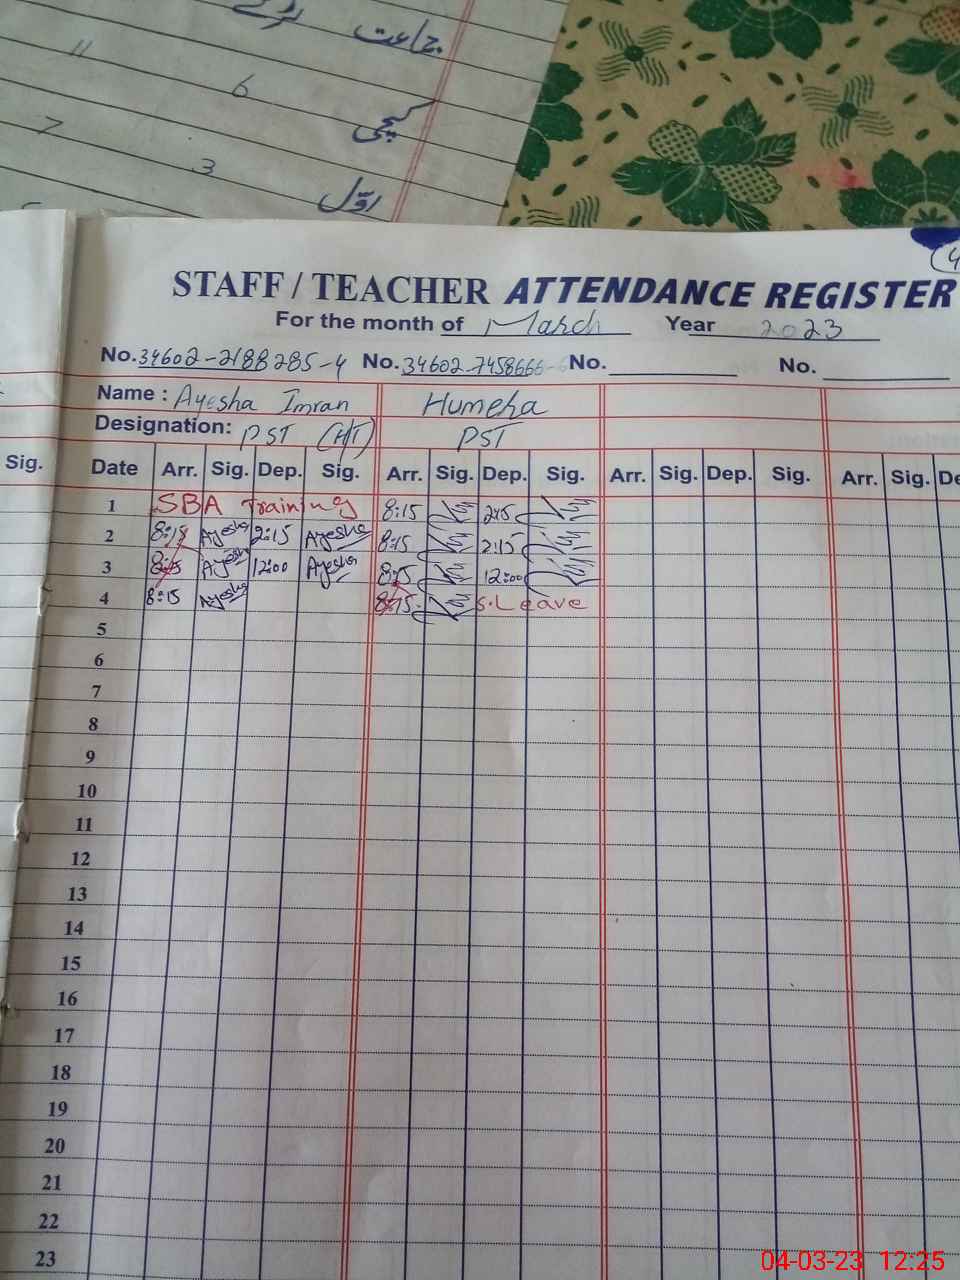 جماعت
11
6
کچی
7
3
اوّل
STAFF / TEACHER ATTENDANCE REGISTER
For the month of March Year 2023
No. 34602-2188285-4 No. 34602-7458666- No. No.
Name : Ayesha Imran Humera
Designation: PST (HT) PST
Sig. Date Arr. Sig. Dep. Sig. Arr. Sig. Dep. Sig. Arr. Sig. Dep. Sig. Arr. Sig. De
1 SBA Training 8:15 2:15
2 8:15 Ayesha 2:15 Ayesha 8:15 2:15
3 8:15 Ayesha 12:00 Ayesha 8:15 12:00
4 8:15 Ayesha 8:15 S.Leave
5
6
7
8
9
10
11
12
13
14
15
16
17
18
19
20
21
22
23
04-03-23 12:25